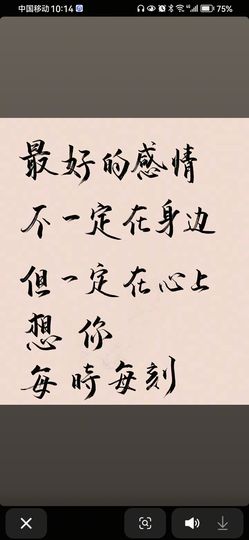 中国移动 10:14 75%
最好的感情
不一定在身边
但一定在心上
想 你
每時每刻